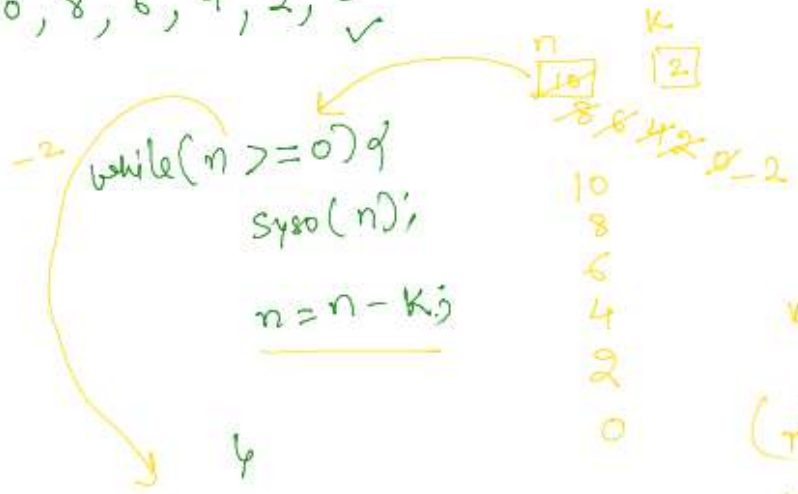 8, 6, 4, 2,
n K
10 2
8 6 4 2 0 -2
-2 while(n >= 0) {
syso(n);
n = n - K;
}
10
8
6
4
2
0